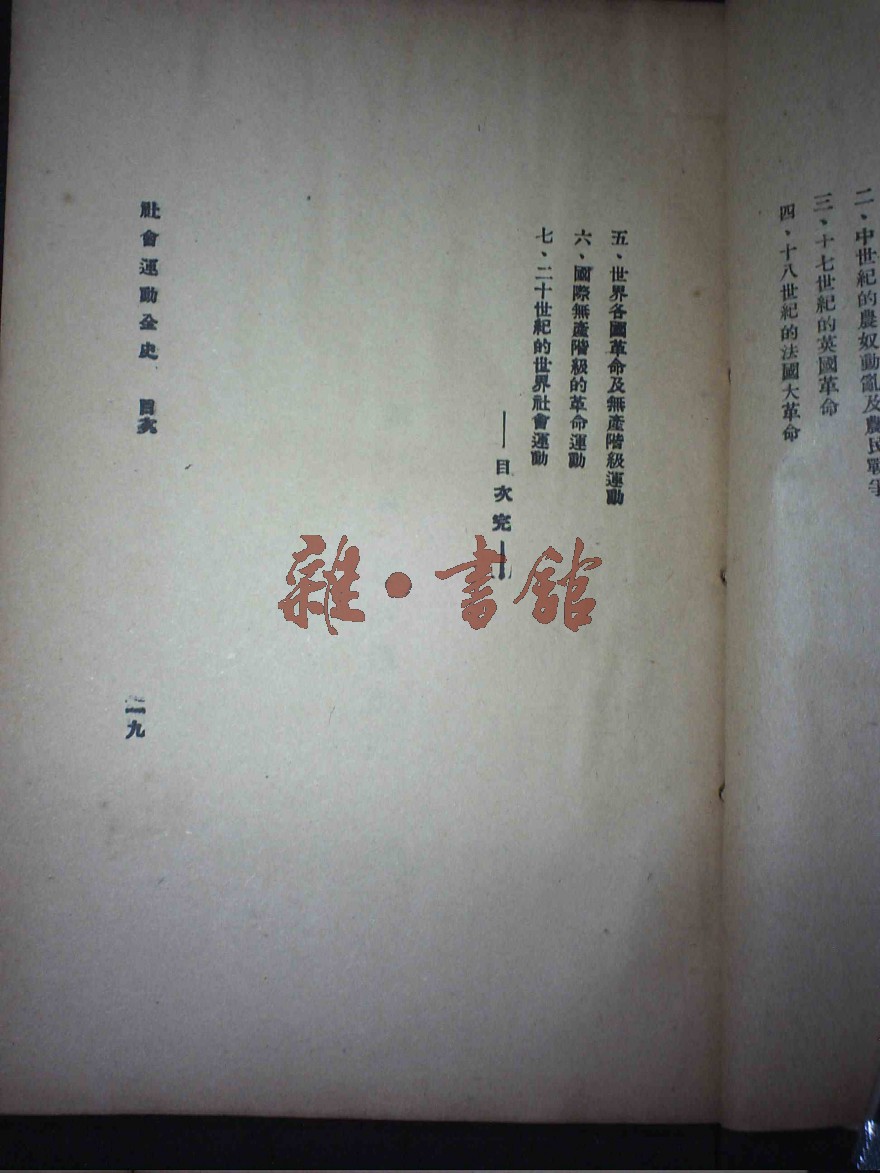 二、中世紀的農奴動亂及農民戰爭
三、十七世紀的英國革命
四、十八世紀的法國大革命
五、世界各國革命及無產階級運動
六、國際無產階級的革命運動
七、二十世紀的世界社會運動
——目次完——
社會運動全史 目次
雜·書館